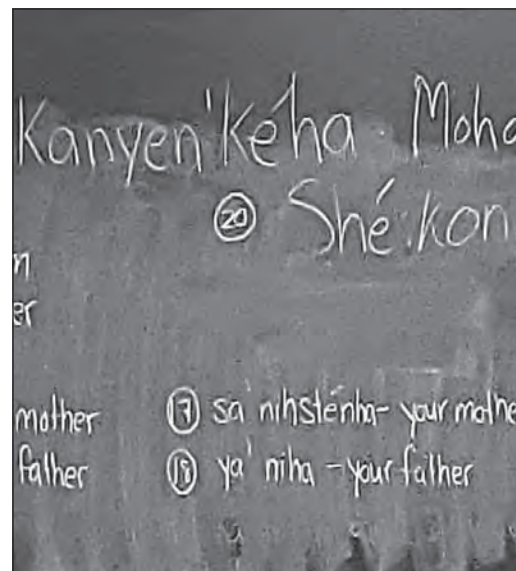 Kanyen'kéha Moha
(20) Shé:kon
n
er
mother (17) sa'nihsténha - your mothe
father (18) ya'niha - your father